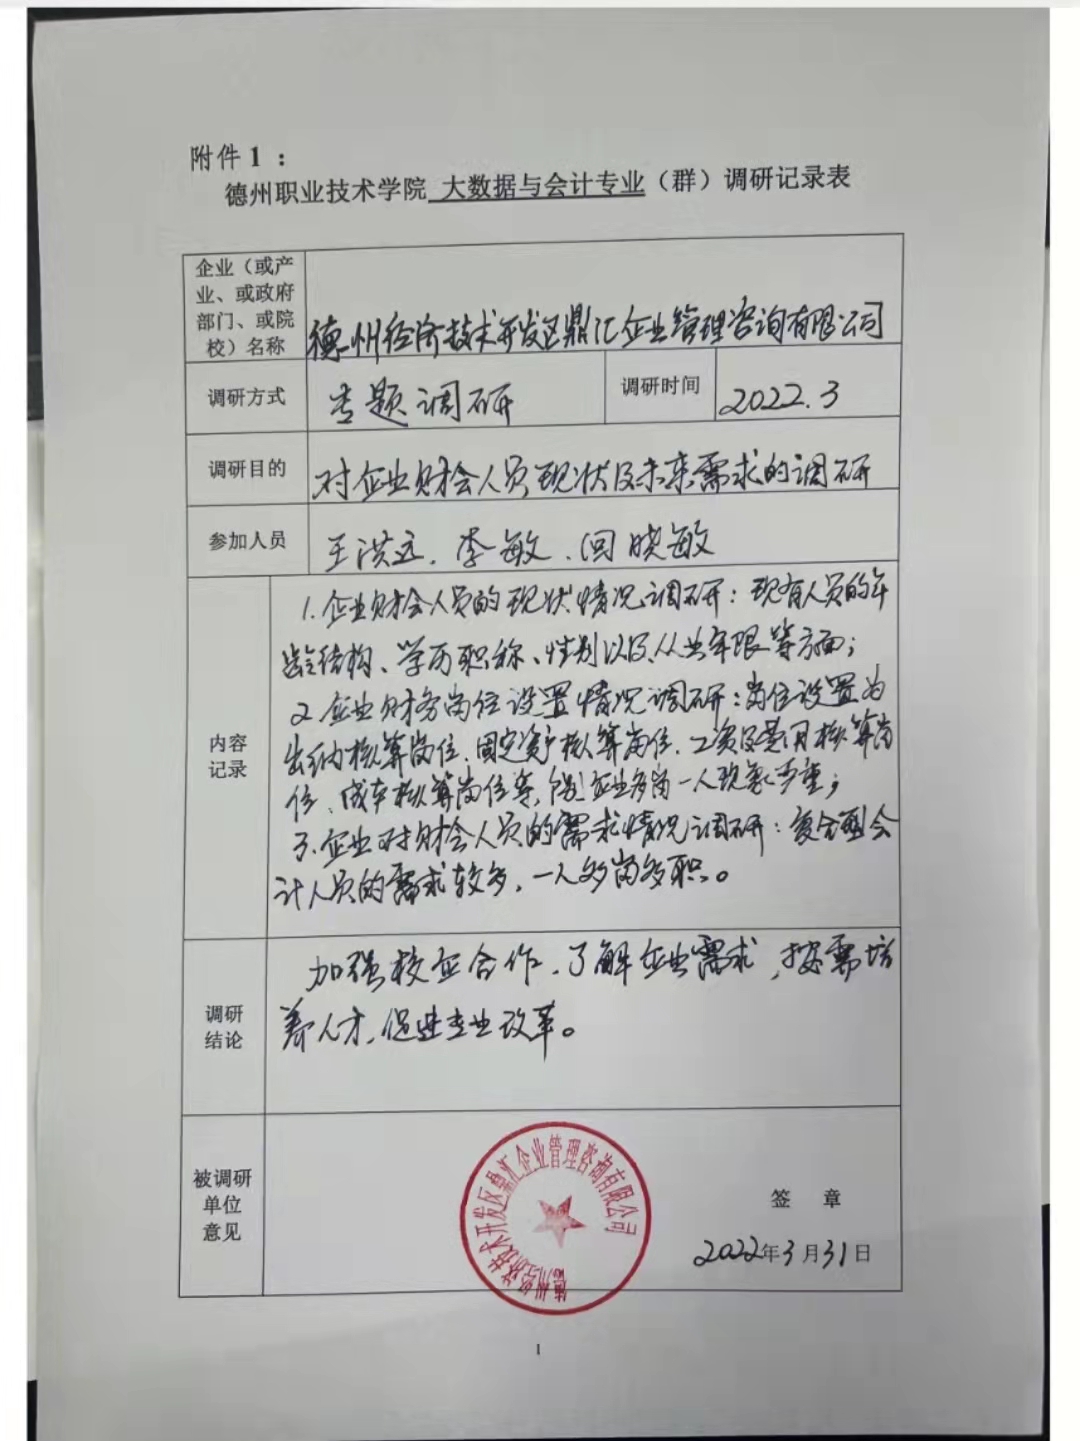 附件1：
德州职业技术学院 大数据与会计专业（群）调研记录表
企业（或产
业、或政府
部门、或院
校）名称
德州经济技术开发区鼎汇企业管理咨询有限公司
调研方式
专题调研
调研时间
2022.3
调研目的
对企业财会人员现状及未来需求的调研
参加人员
王洪远、李敏、回晓敏
内容
记录
1.企业财会人员的现状情况调研：现有人员的年
龄结构、学历职称、性别以及从业年限等方面；
2.企业财务岗位设置情况调研：岗位设置为
出纳核算岗位、固定资产核算岗位、工资及费用核算岗
位、成本核算岗位等，个别企业多岗一人现象严重；
3.企业对财会人员的需求情况调研：复合型会
计人员的需求较多，一人多岗多职。
调研
结论
加强校企合作，了解企业需求，按需培
养人才，促进专业改革。
被调研
单位
意见
德州经济技术开发区鼎汇企业管理咨询有限公司
签 章
2022年3月31日
1